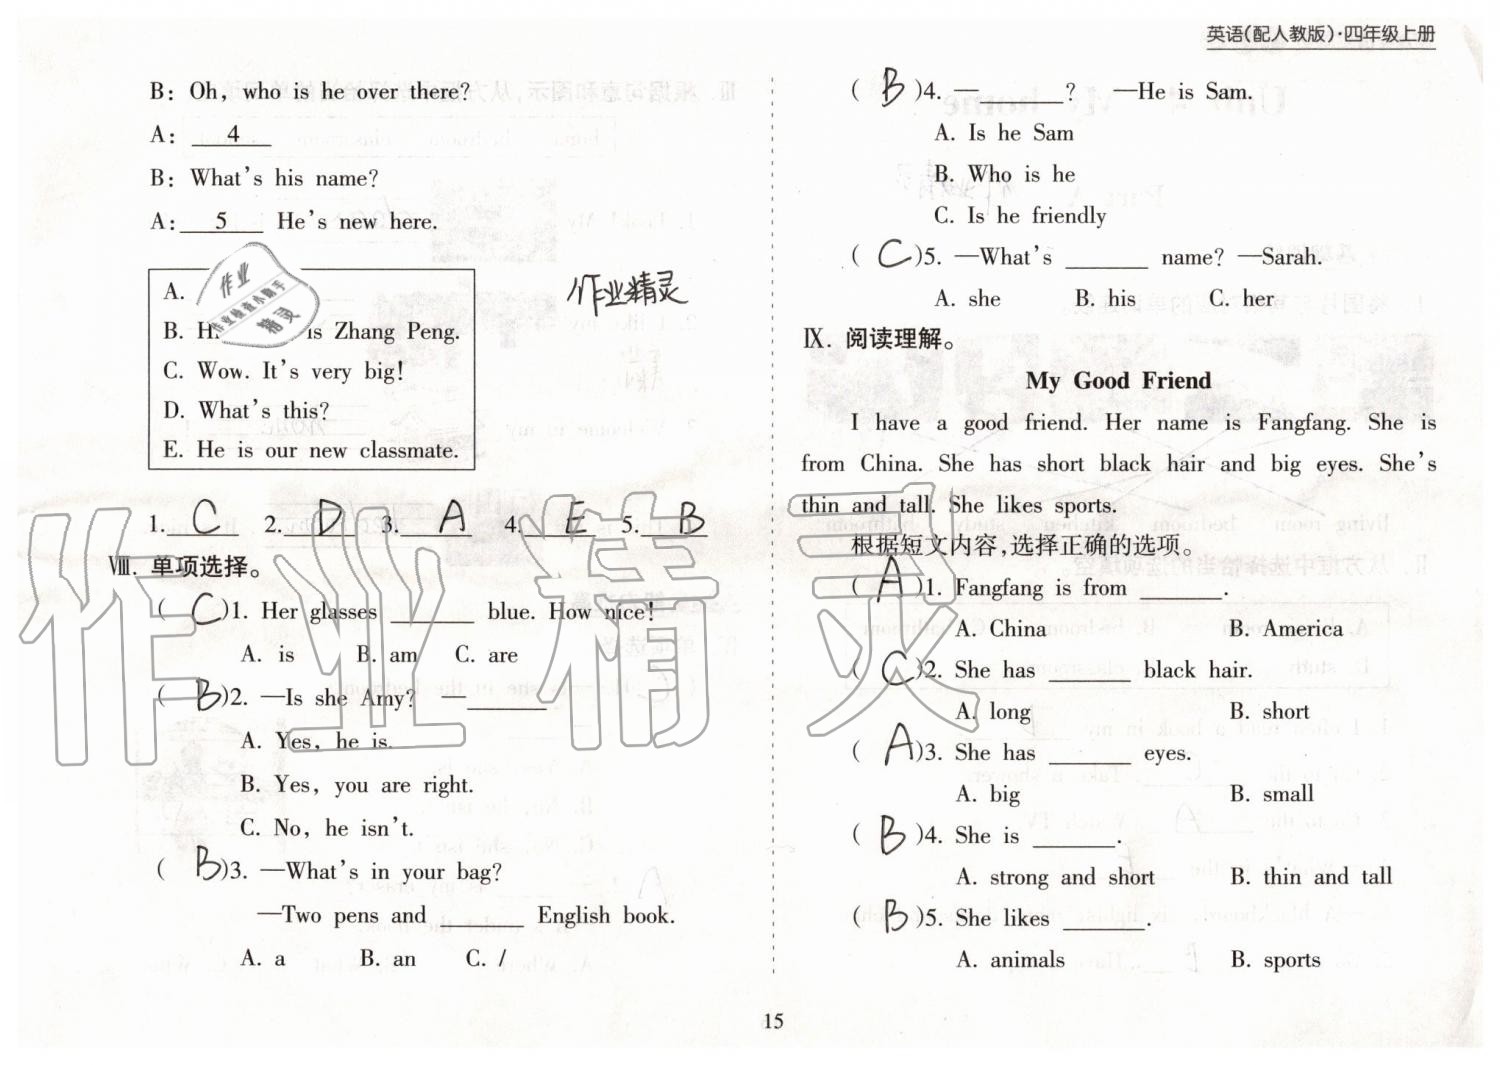 英语(配人教版)·四年级上册
B: Oh, who is he over there?
A: 4
B: What's his name?
A: 5 He's new here.
A.
B. H is Zhang Peng.
C. Wow. It's very big!
D. What's this?
E. He is our new classmate.
作业
作业检查小助手
精灵
作业精灵
1. C 2. D 3. A 4. E 5. B
Ⅷ. 单项选择。
( C )1. Her glasses ______ blue. How nice!
A. is B. am C. are
( B )2. —Is she Amy? —______
A. Yes, he is.
B. Yes, you are right.
C. No, he isn't.
( B )3. —What's in your bag?
—Two pens and ______ English book.
A. a B. an C. /
( B )4. —______? —He is Sam.
A. Is he Sam
B. Who is he
C. Is he friendly
( C )5. —What's ______ name? —Sarah.
A. she B. his C. her
Ⅸ. 阅读理解。
My Good Friend
I have a good friend. Her name is Fangfang. She is
from China. She has short black hair and big eyes. She's
thin and tall. She likes sports.
根据短文内容,选择正确的选项。
( A )1. Fangfang is from ______.
A. China B. America
( C )2. She has ______ black hair.
A. long B. short
( A )3. She has ______ eyes.
A. big B. small
( B )4. She is ______.
A. strong and short B. thin and tall
( B )5. She likes ______.
A. animals B. sports
作业精灵
15